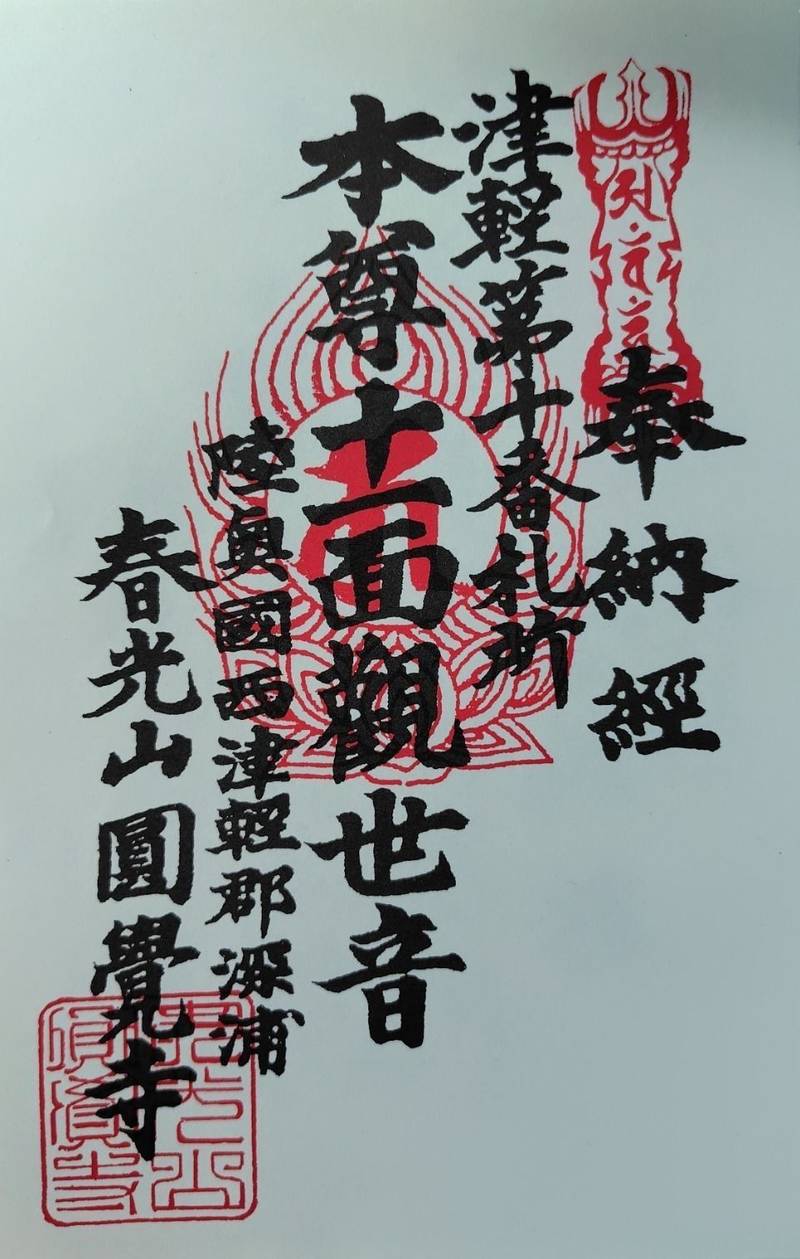 奉納経
津輕第十番札所
本尊十一面觀世音
陸奧國西津輕郡深浦
春光山圓覺寺